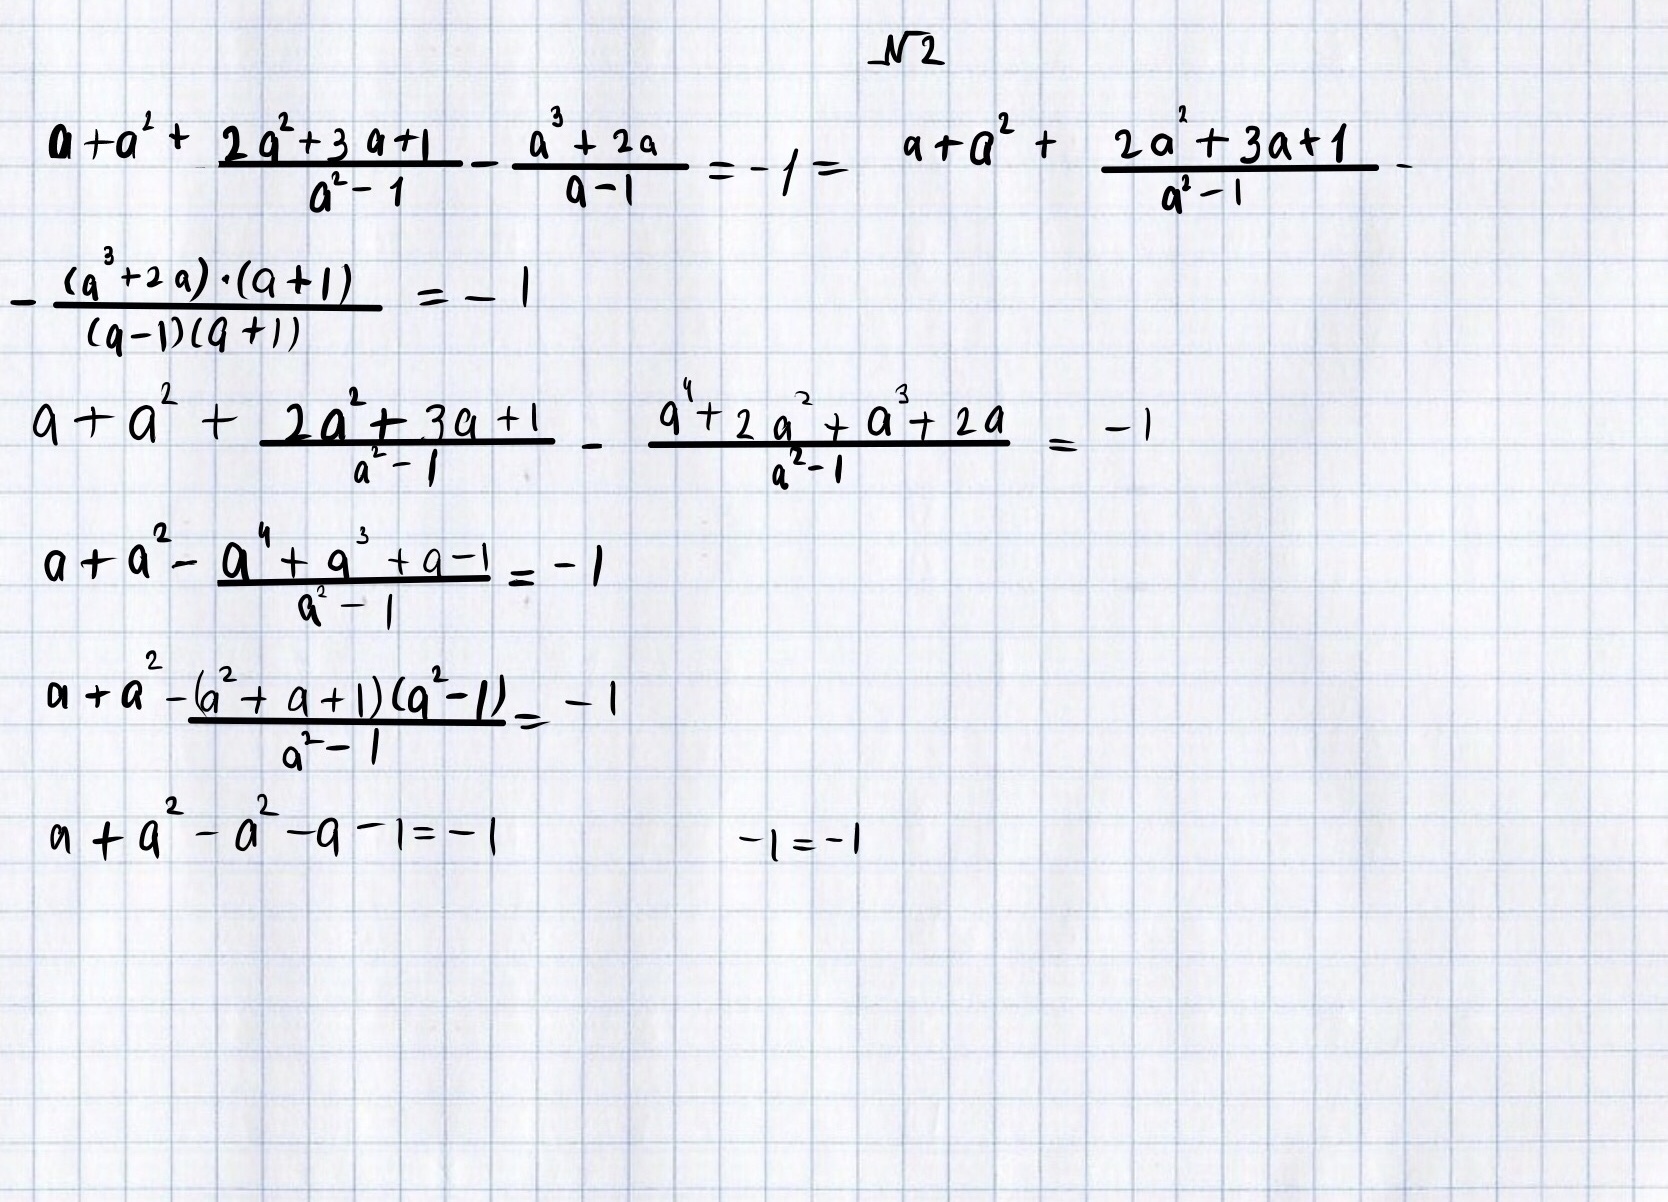 №2
a + a² + (2a² + 3a + 1)/(a² - 1) - (a³ + 2a)/(a - 1) = -1 = a + a² + (2a² + 3a + 1)/(a² - 1) -
- ((a³ + 2a)·(a + 1))/((a - 1)(a + 1)) = -1
a + a² + (2a² + 3a + 1)/(a² - 1) - (a⁴ + 2a² + a³ + 2a)/(a² - 1) = -1
a + a² - (a⁴ + a³ + a - 1)/(a² - 1) = -1
a + a² - ((a² + a + 1)(a² - 1))/(a² - 1) = -1
a + a² - a² - a - 1 = -1 -1 = -1